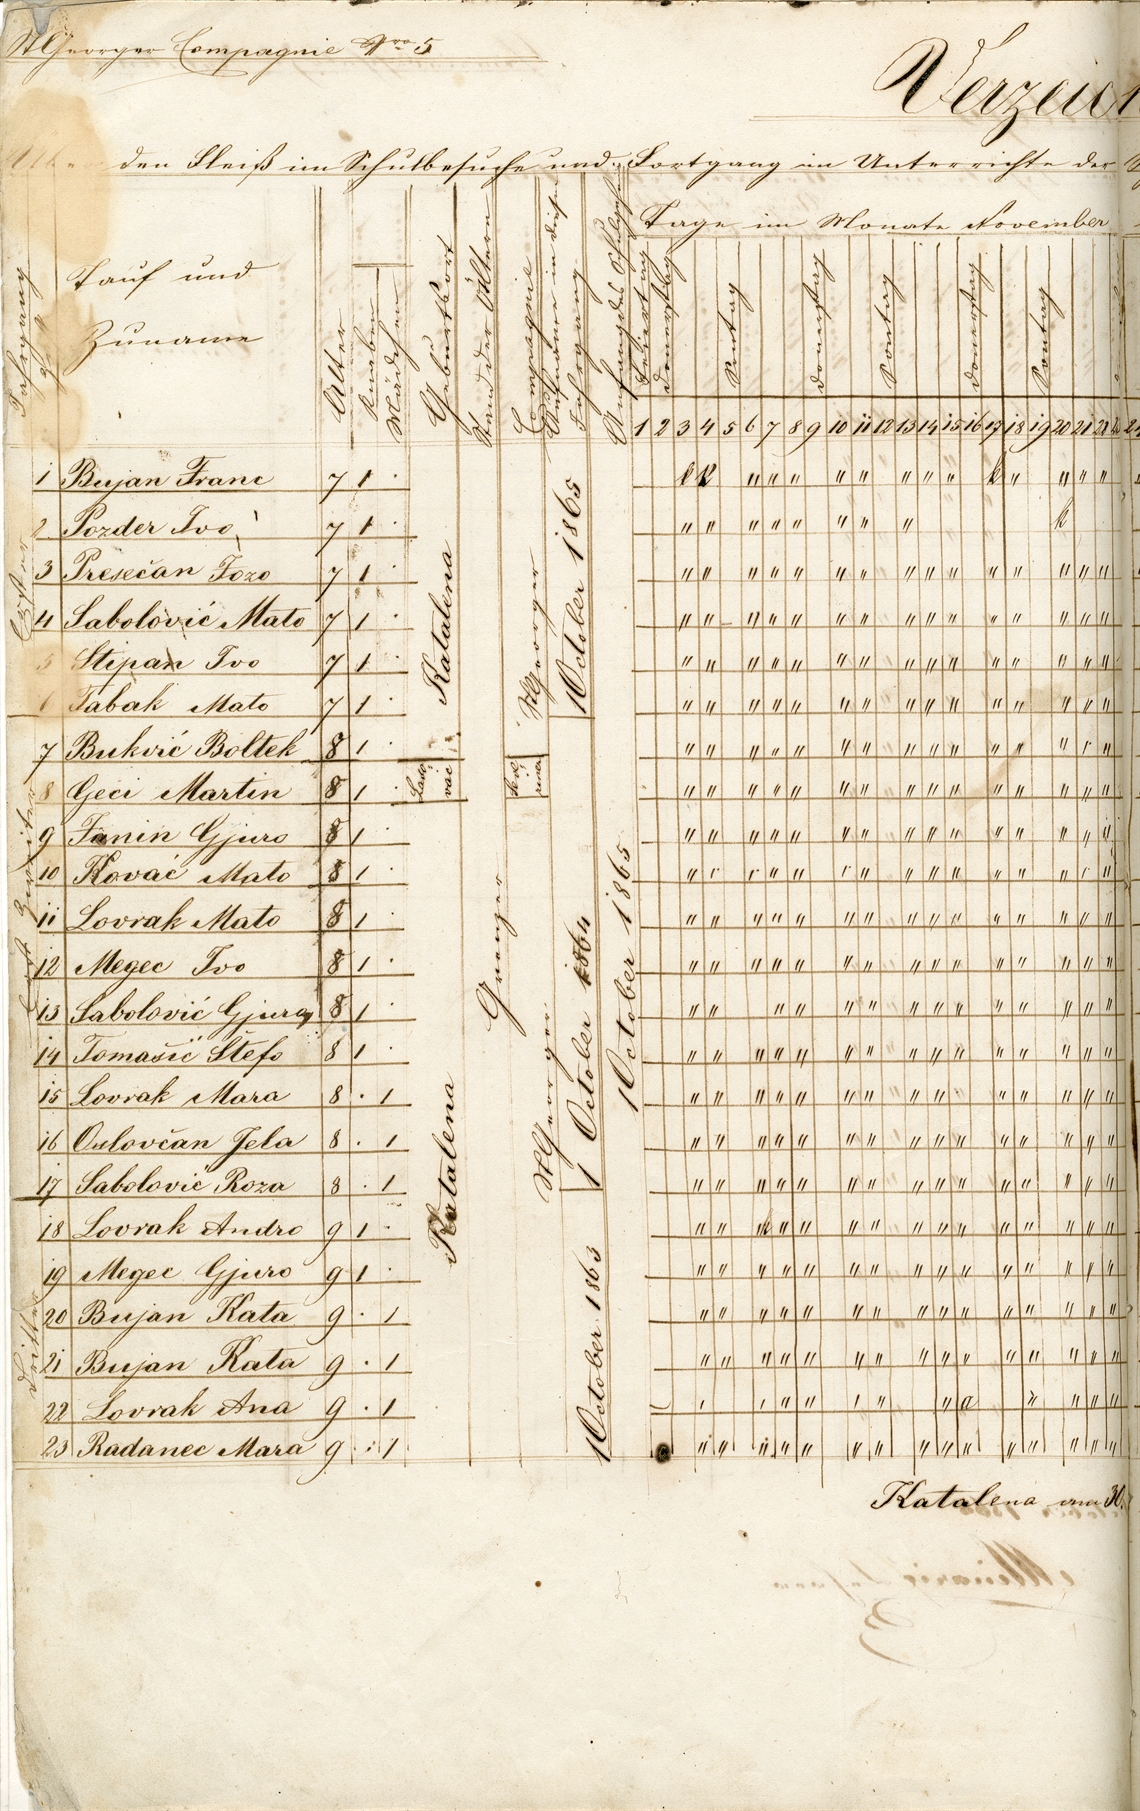 StGeorger Compagnie Nro 5
Verzeich
den Fleiß im Schulbesuche und Fortgang im Unterrichte der
Jahrgang
Tauf und
Zuname
Alter
Knaben
Mädchen
Geburtsort
Stand der Ältern
Compagnie
Aufnahme in diesen
Jahrgang
Anfang des Schulgehens
Tage im Monate November
Feiertag
Donnerstag
Sontag
Donnerstag
Sontag
Donnerstag
Sontag
1 2 3 4 5 6 7 8 9 10 11 12 13 14 15 16 17 18 19 20 21 22
Erster
1 Bujan Franc 7 1 ·
2 Pozder Ivo 7 1 ·
3 Presečan Jozo 7 1 ·
4 Sabolović Mato 7 1 ·
5 Stipan Ivo 7 1 ·
6 Tabak Mato 7 1 ·
Katalena
StGeorger
1 October 1865
Zweiter
7 Buković Boltek 8 1 ·
8 Geci Martin 8 1 ·
9 Janin Gjuro 8 1 ·
10 Kovać Mato 8 1 ·
11 Lovrak Mato 8 1 ·
12 Megec Ivo 8 1 ·
13 Sabolović Gjuro 8 1 ·
14 Tomašić Štefo 8 1 ·
15 Lovrak Mara 8 · 1
16 Oulovčan Jela 8 · 1
17 Sabolović Roza 8 · 1
Grenzer
StGeorger
1 October 1864
1 October 1865
Katalena
Dritter
18 Lovrak Andro 9 1 ·
19 Megec Gjuro 9 1 ·
20 Bujan Kata 9 · 1
21 Bujan Kata 9 · 1
22 Lovrak Ana 9 · 1
23 Radanec Mara 9 · 1
1 October 1863
Katalena am 30.